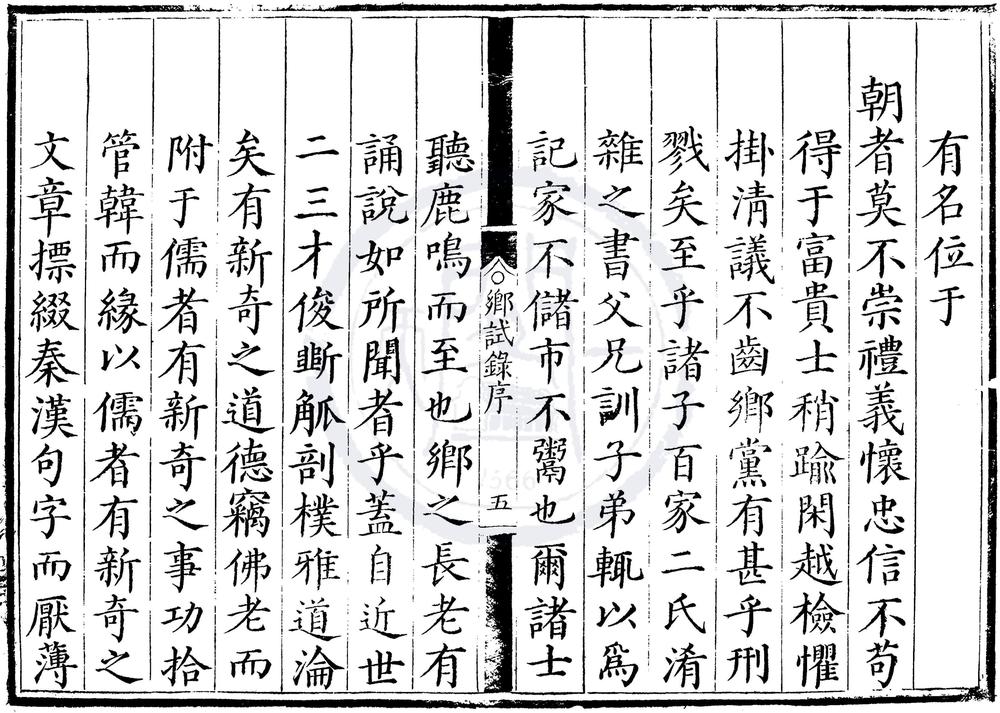 有名位于
朝者莫不崇禮義懷忠信不苟
得于富貴士稍踰閑越檢懼
掛淸議不齒鄉黨有甚乎刑
戮矣至乎諸子百家二氏淆
雜之書父兄訓子弟輒以爲
記家不儲市不鬻也爾諸士
鄉試錄序
五
聽鹿鳴而至也鄉之長老有
誦說如所聞者乎蓋自近世
二三才俊斲觚剖樸雅道淪
矣有新奇之道德竊佛老而
附于儒者有新奇之事功拾
管韓而緣以儒者有新奇之
文章摽綴秦漢句字而厭薄